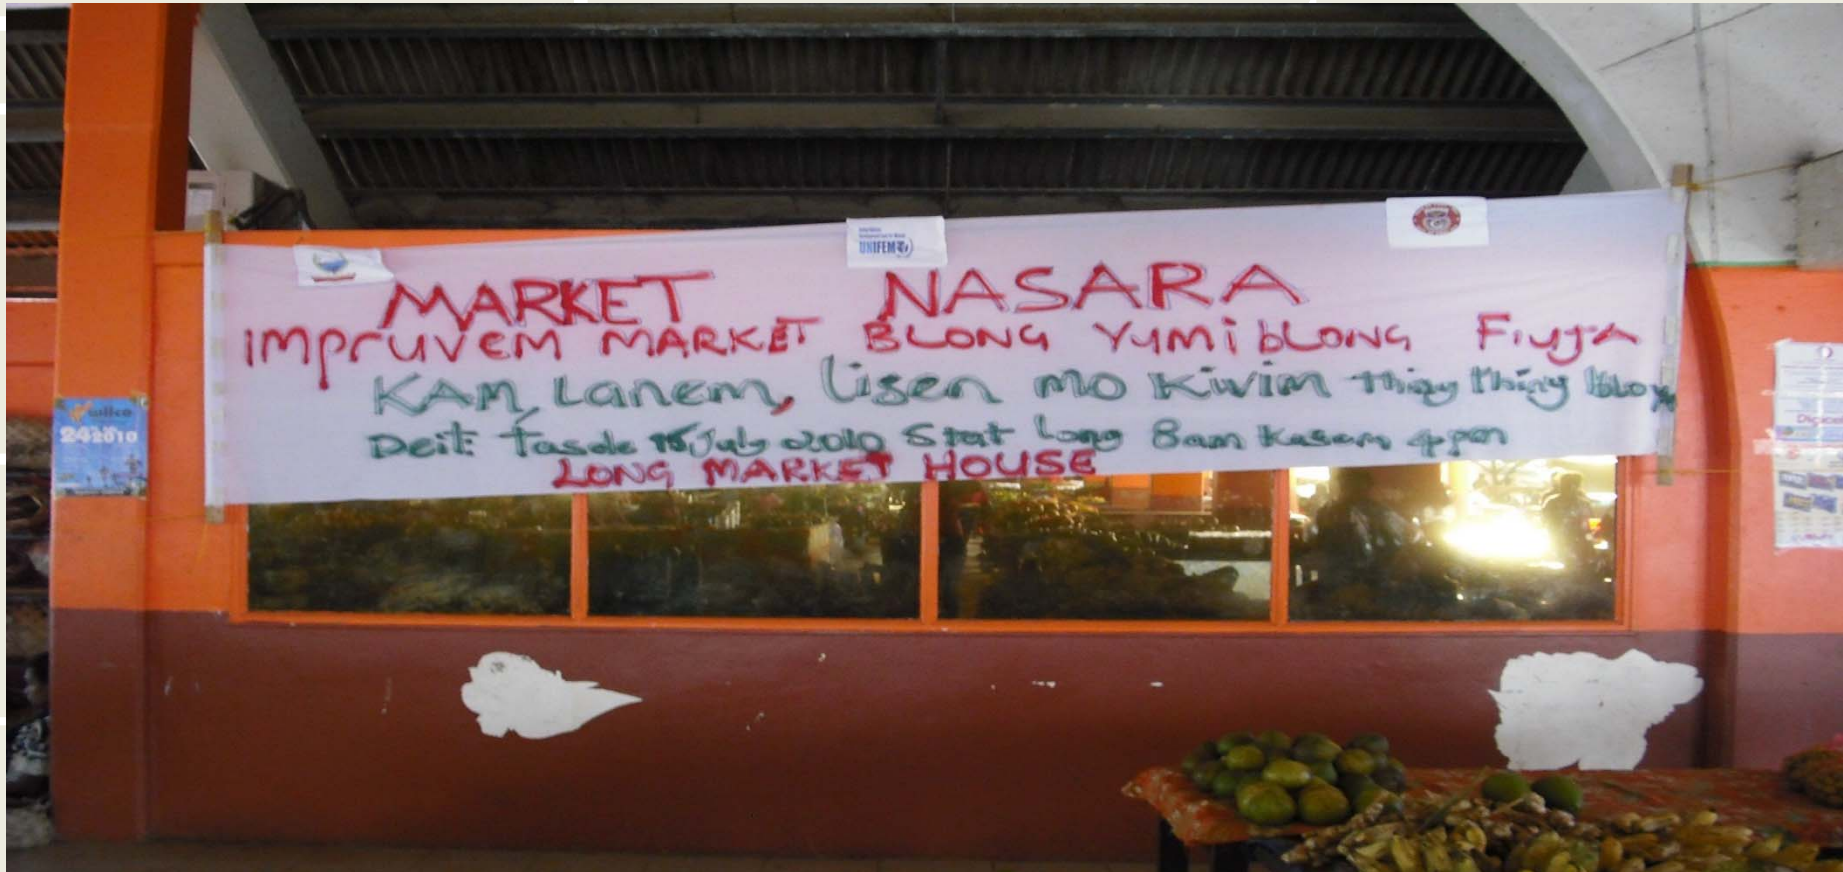 UNIFEM
MARKET NASARA
IMPRUVEM MARKET BLONG YUMI BLONG FIUJA
KAM, Lanem, lisen mo kivim thing thing blo
Deit: Tasde 15 July 2010 Stat Long 8am Kasem 4pm
LONG MARKET HOUSE
24 2010